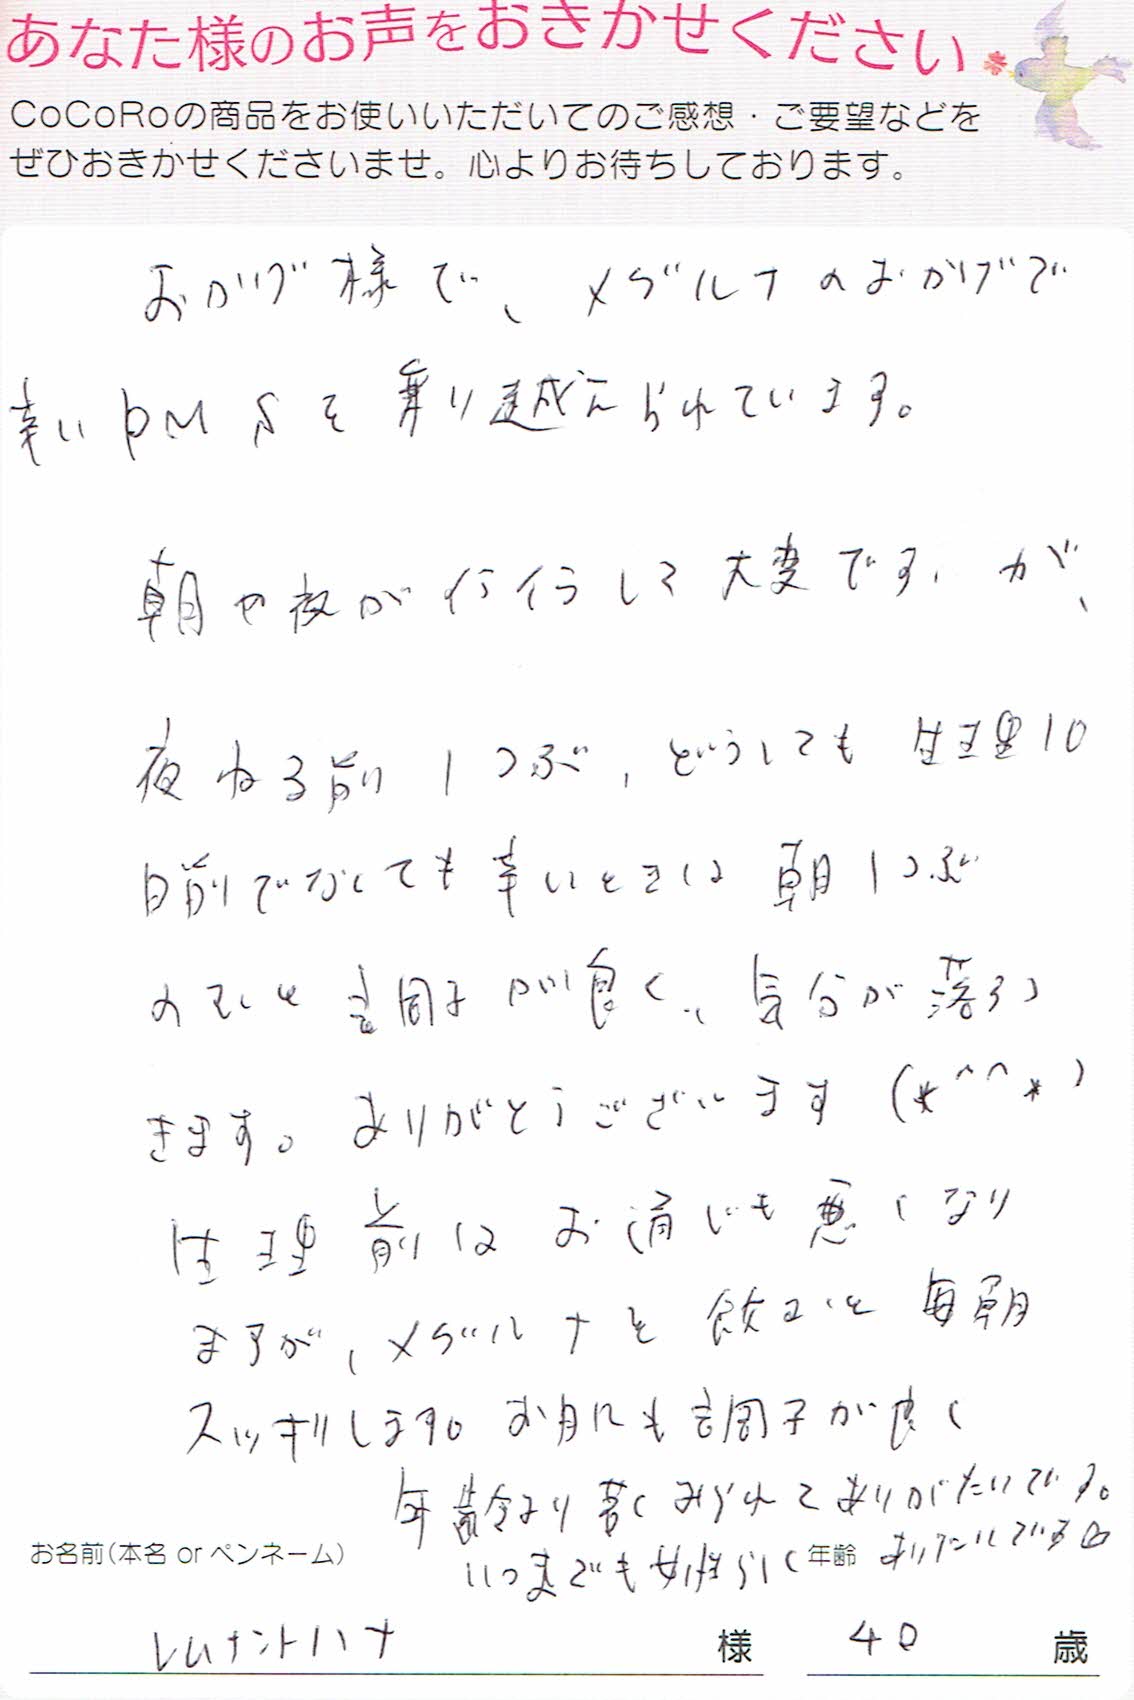 あなた様のお声をおきかせください
CoCoRoの商品をお使いいただいてのご感想・ご要望などを
ぜひおきかせくださいませ。心よりお待ちしております。
おかげ様で、メグルナのおかげで
辛いPMSを乗り越えられています。
朝や夜が行ったり大変ですが、
夜ねる前1つぶ、どうしても生理10
日前でなくても辛いときは朝1つぶ
のむと調子が良く、気分が落ちつ
きます。ありがとうございます(*^^*)
生理前はお通じも悪くなり
ますが、メグルナを飲むと毎朝
スッキリします。お肌にも調子が良く
年齢より若くみられてありがたいです。
いつまでも女性らしく ありたいです
お名前(本名 or ペンネーム) 年齢
レムナントハナ 様 40 歳